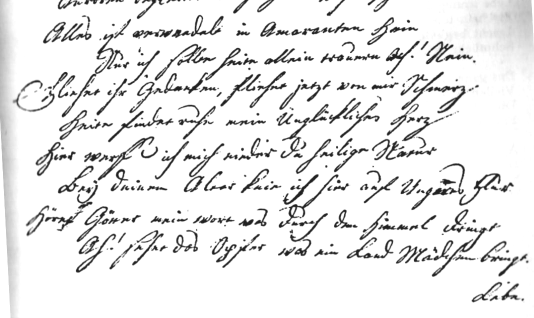 Alles ist verwandelt in Amaranten Hain
Nur ich sollte heite allein trauern ach! Nein.
Fliehet ihr Gedanken, fliehet jetzt von mir Schmerz
Heite findet ruhe mein Unglückliches Herz
Hier werff ich mich nieder du heilige Natur
Bey deinem Altar knie ich hier auf Ungarns Flur
Höret Göner mein wort was durch den Himmel dringt
Ach! sehet das Opfer was ein Land Mädchen bringt.